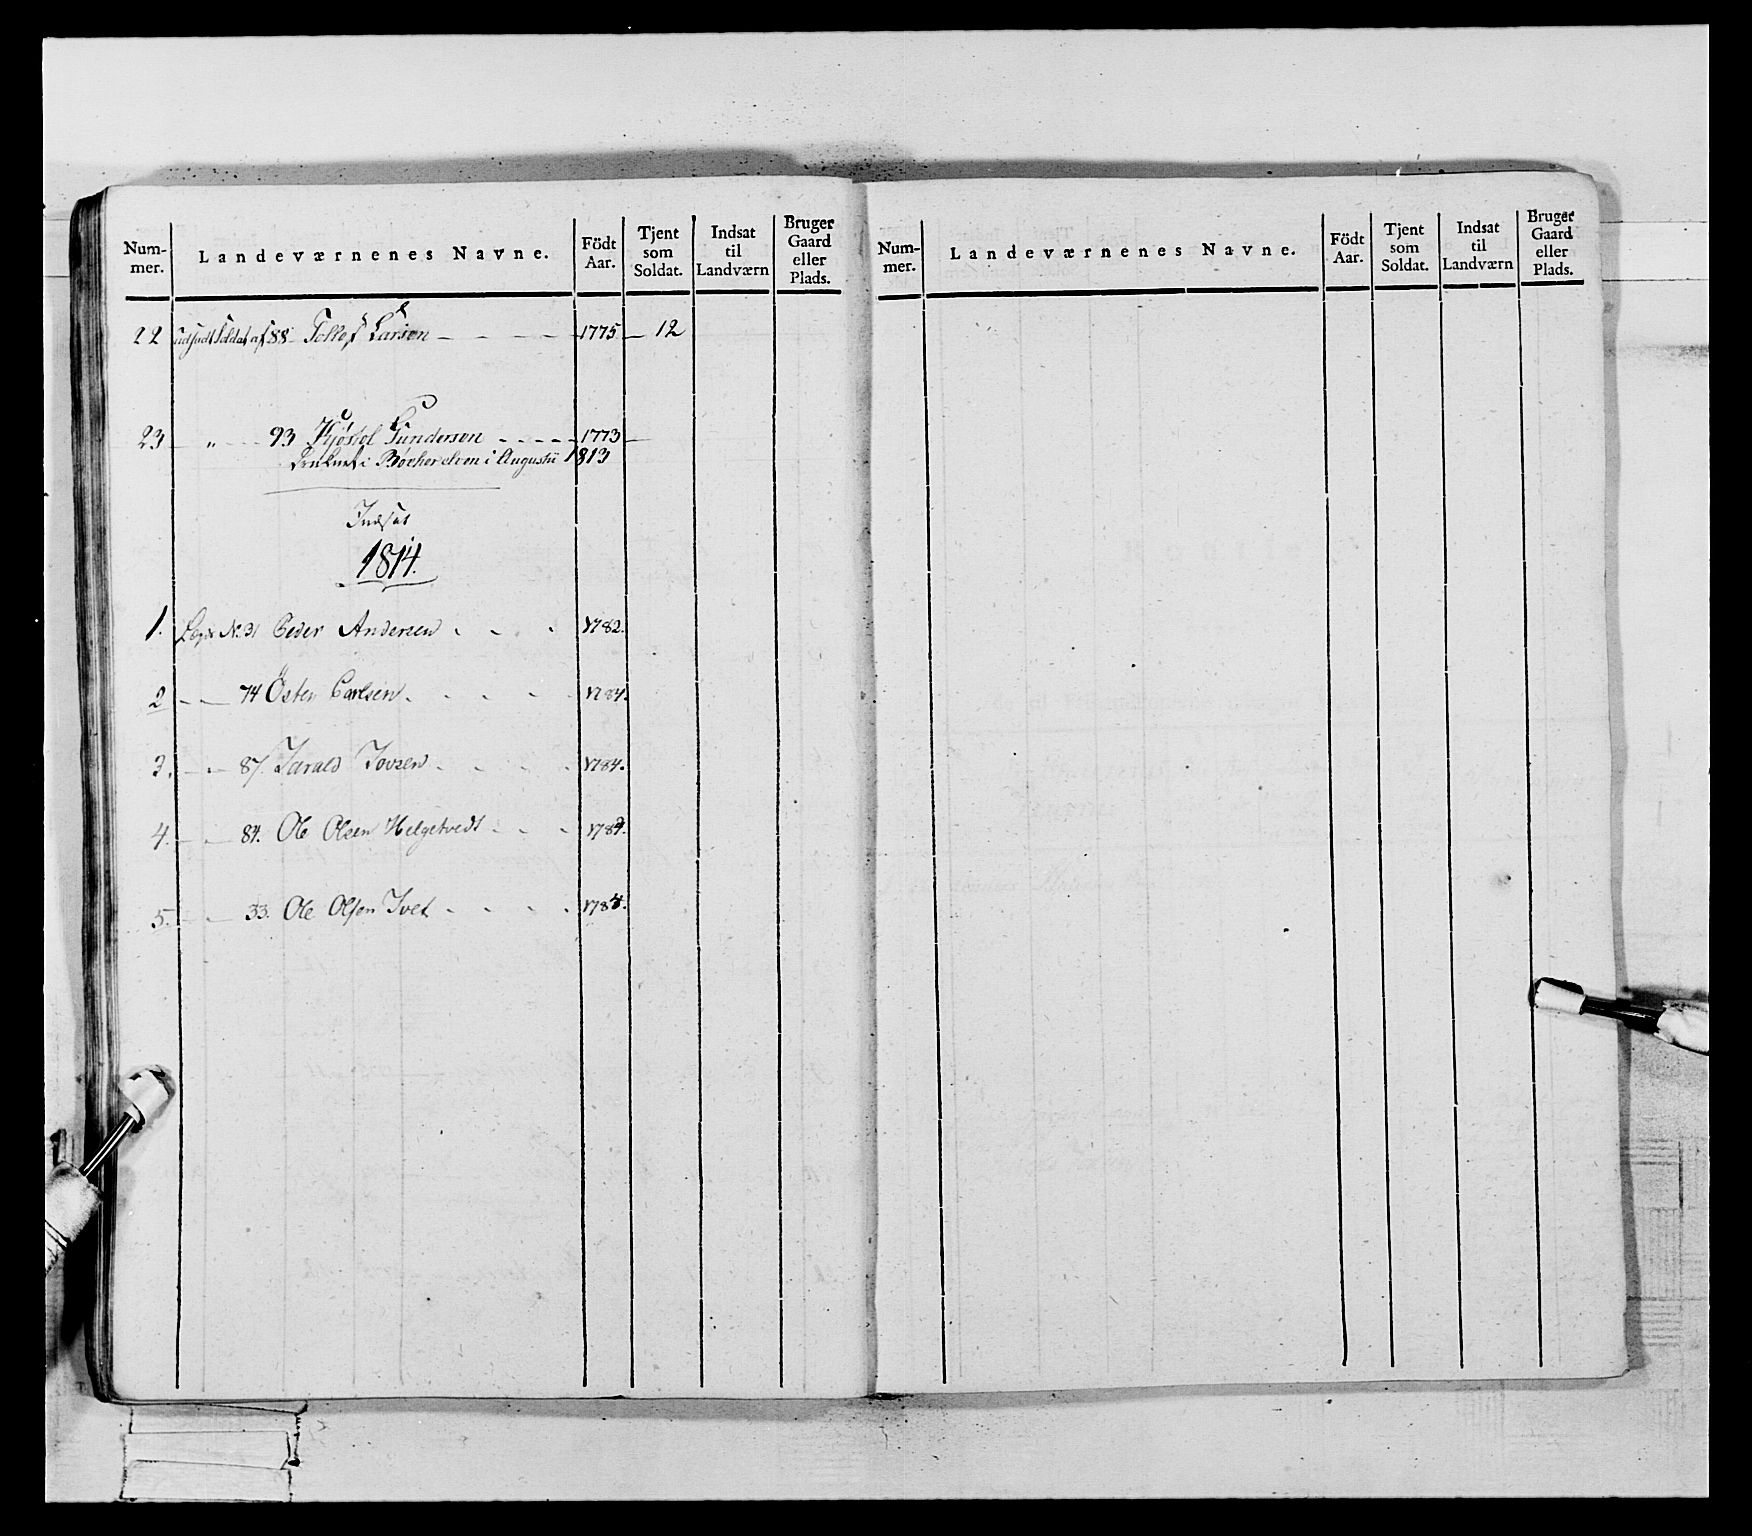 Num-
mer.
Landeværnenes Navne.
Födt
Aar.
Tjent
som
Soldat.
Indsat
til
Landværn
Bruger
Gaard
eller
Plads.
22 udsadt Soldat af 88 Tollef Larsen - - - - 1775 - 12
23 - „ - - - 93 Kjøstol Gundersen - - - - - 1773 -
Druknet i elven i Augustii 1813
Indsat
1814.
1. Lægds No. 31 Peder Andersen - - - 1782.
2 - - 74 Östen Carlsen. - - - - 1784.
3. - - 87. Tarald Tovsen - - - - 1784.
4. - - 84. Ole Olsen Helgetvedt - - - 1784.
5. - - 33. Ole Olsen Tvet - - - - 1784.
Num-
mer.
Landeværnenes Navne.
Födt
Aar.
Tjent
som
Soldat.
Indsat
til
Landværn
Bruger
Gaard
eller
Plads.